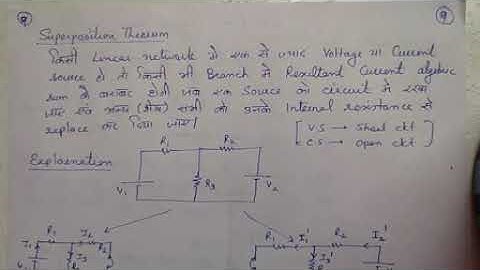 9
9
Superposition Theorem
किसी Linear network मे एक से ज्यादा Voltage या Current
source हो तो किसी भी Branch मे Resultant Current algebric
sum के बराबर होगी जब एक Source को circuit मे रखा
जाए एवं अन्य (शेष) सभी को उनके Internal resistance से
replace कर दिया जाए।
[ V.S → Short ckt
C.S → Open ckt ]
Explaination
R₁ R₂
V₁ R₃ V₂
R₁ I₂ R₂
I₁ I₃
R₁ I₁' R₂ I₂'
I₃'